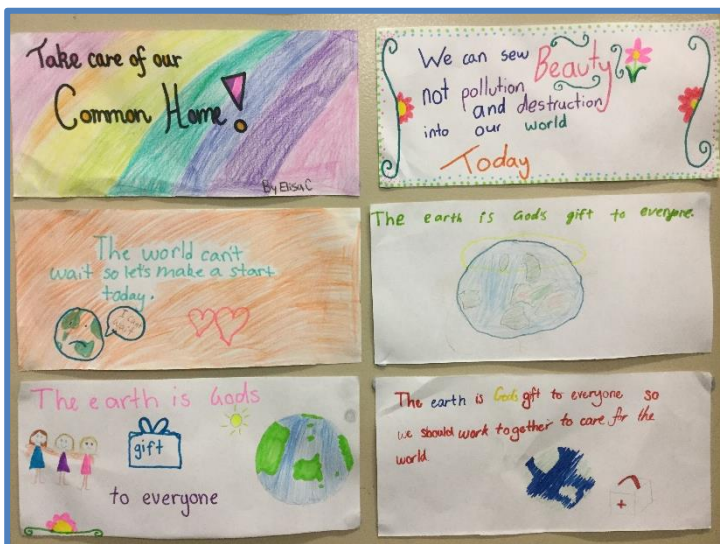 Take care of our
Common Home!
By Elisa C
We can sew Beauty
not pollution
and destruction
into our world
Today
The world can't
wait so let's make a start
today.
The earth is Gods gift to everyone.
The earth is Gods
gift
to everyone
The earth is Gods gift to everyone so
we should work together to care for the
world